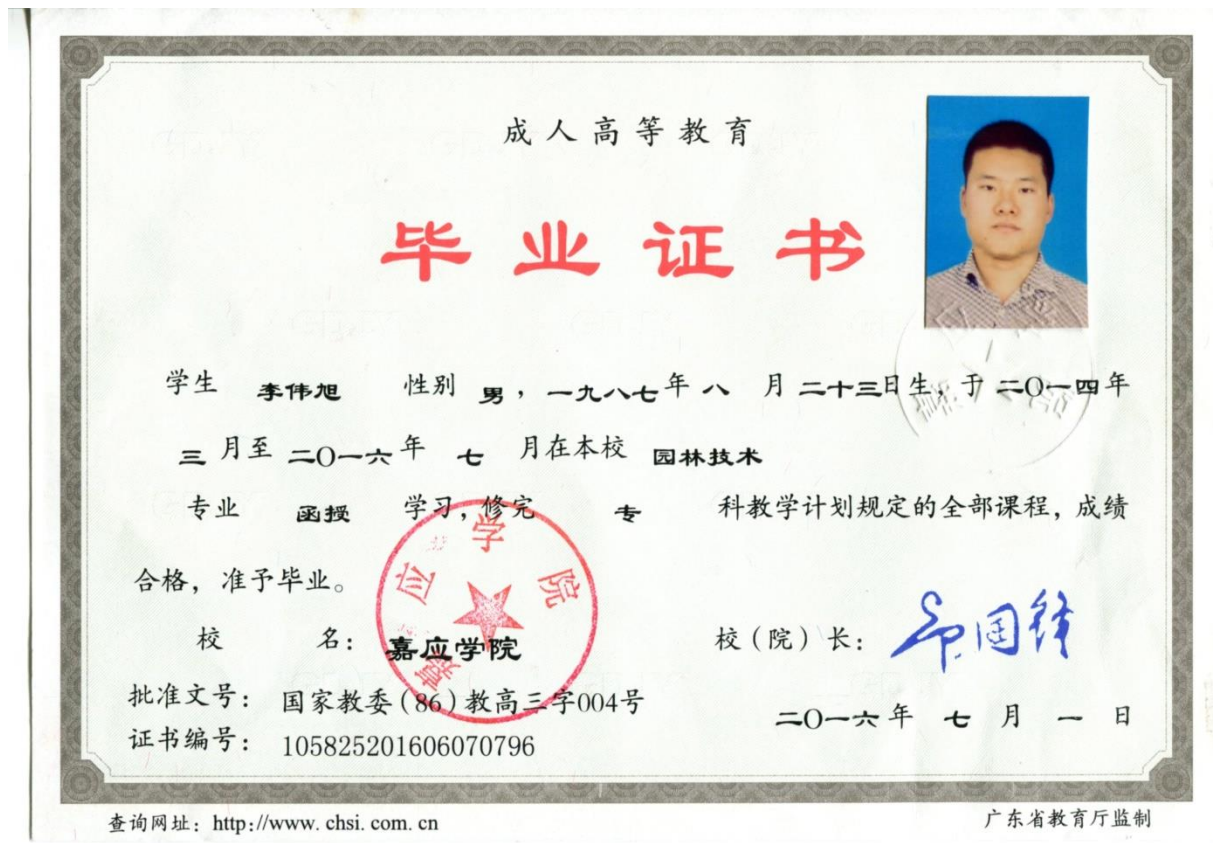 成人高等教育
毕业证书
学生 李伟旭 性别 男，一九八七年 八 月 二十三日生，于 二〇一四年
三 月至 二〇一六年 七 月在本校 园林技术
专业 函授 学习，修完 专 科教学计划规定的全部课程，成绩
合格，准予毕业。
校 名：嘉应学院 校（院）长：邱国锋
批准文号：国家教委（86）教高三字004号
二〇一六年 七 月 一 日
证书编号：105825201606070796
查询网址：http://www.chsi.com.cn 广东省教育厅监制
嘉应学院